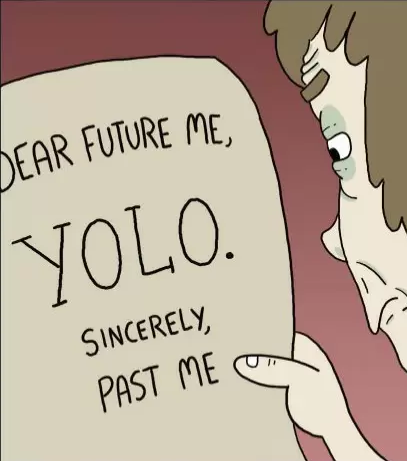 DEAR FUTURE ME,
YOLO.
SINCERELY,
PAST ME